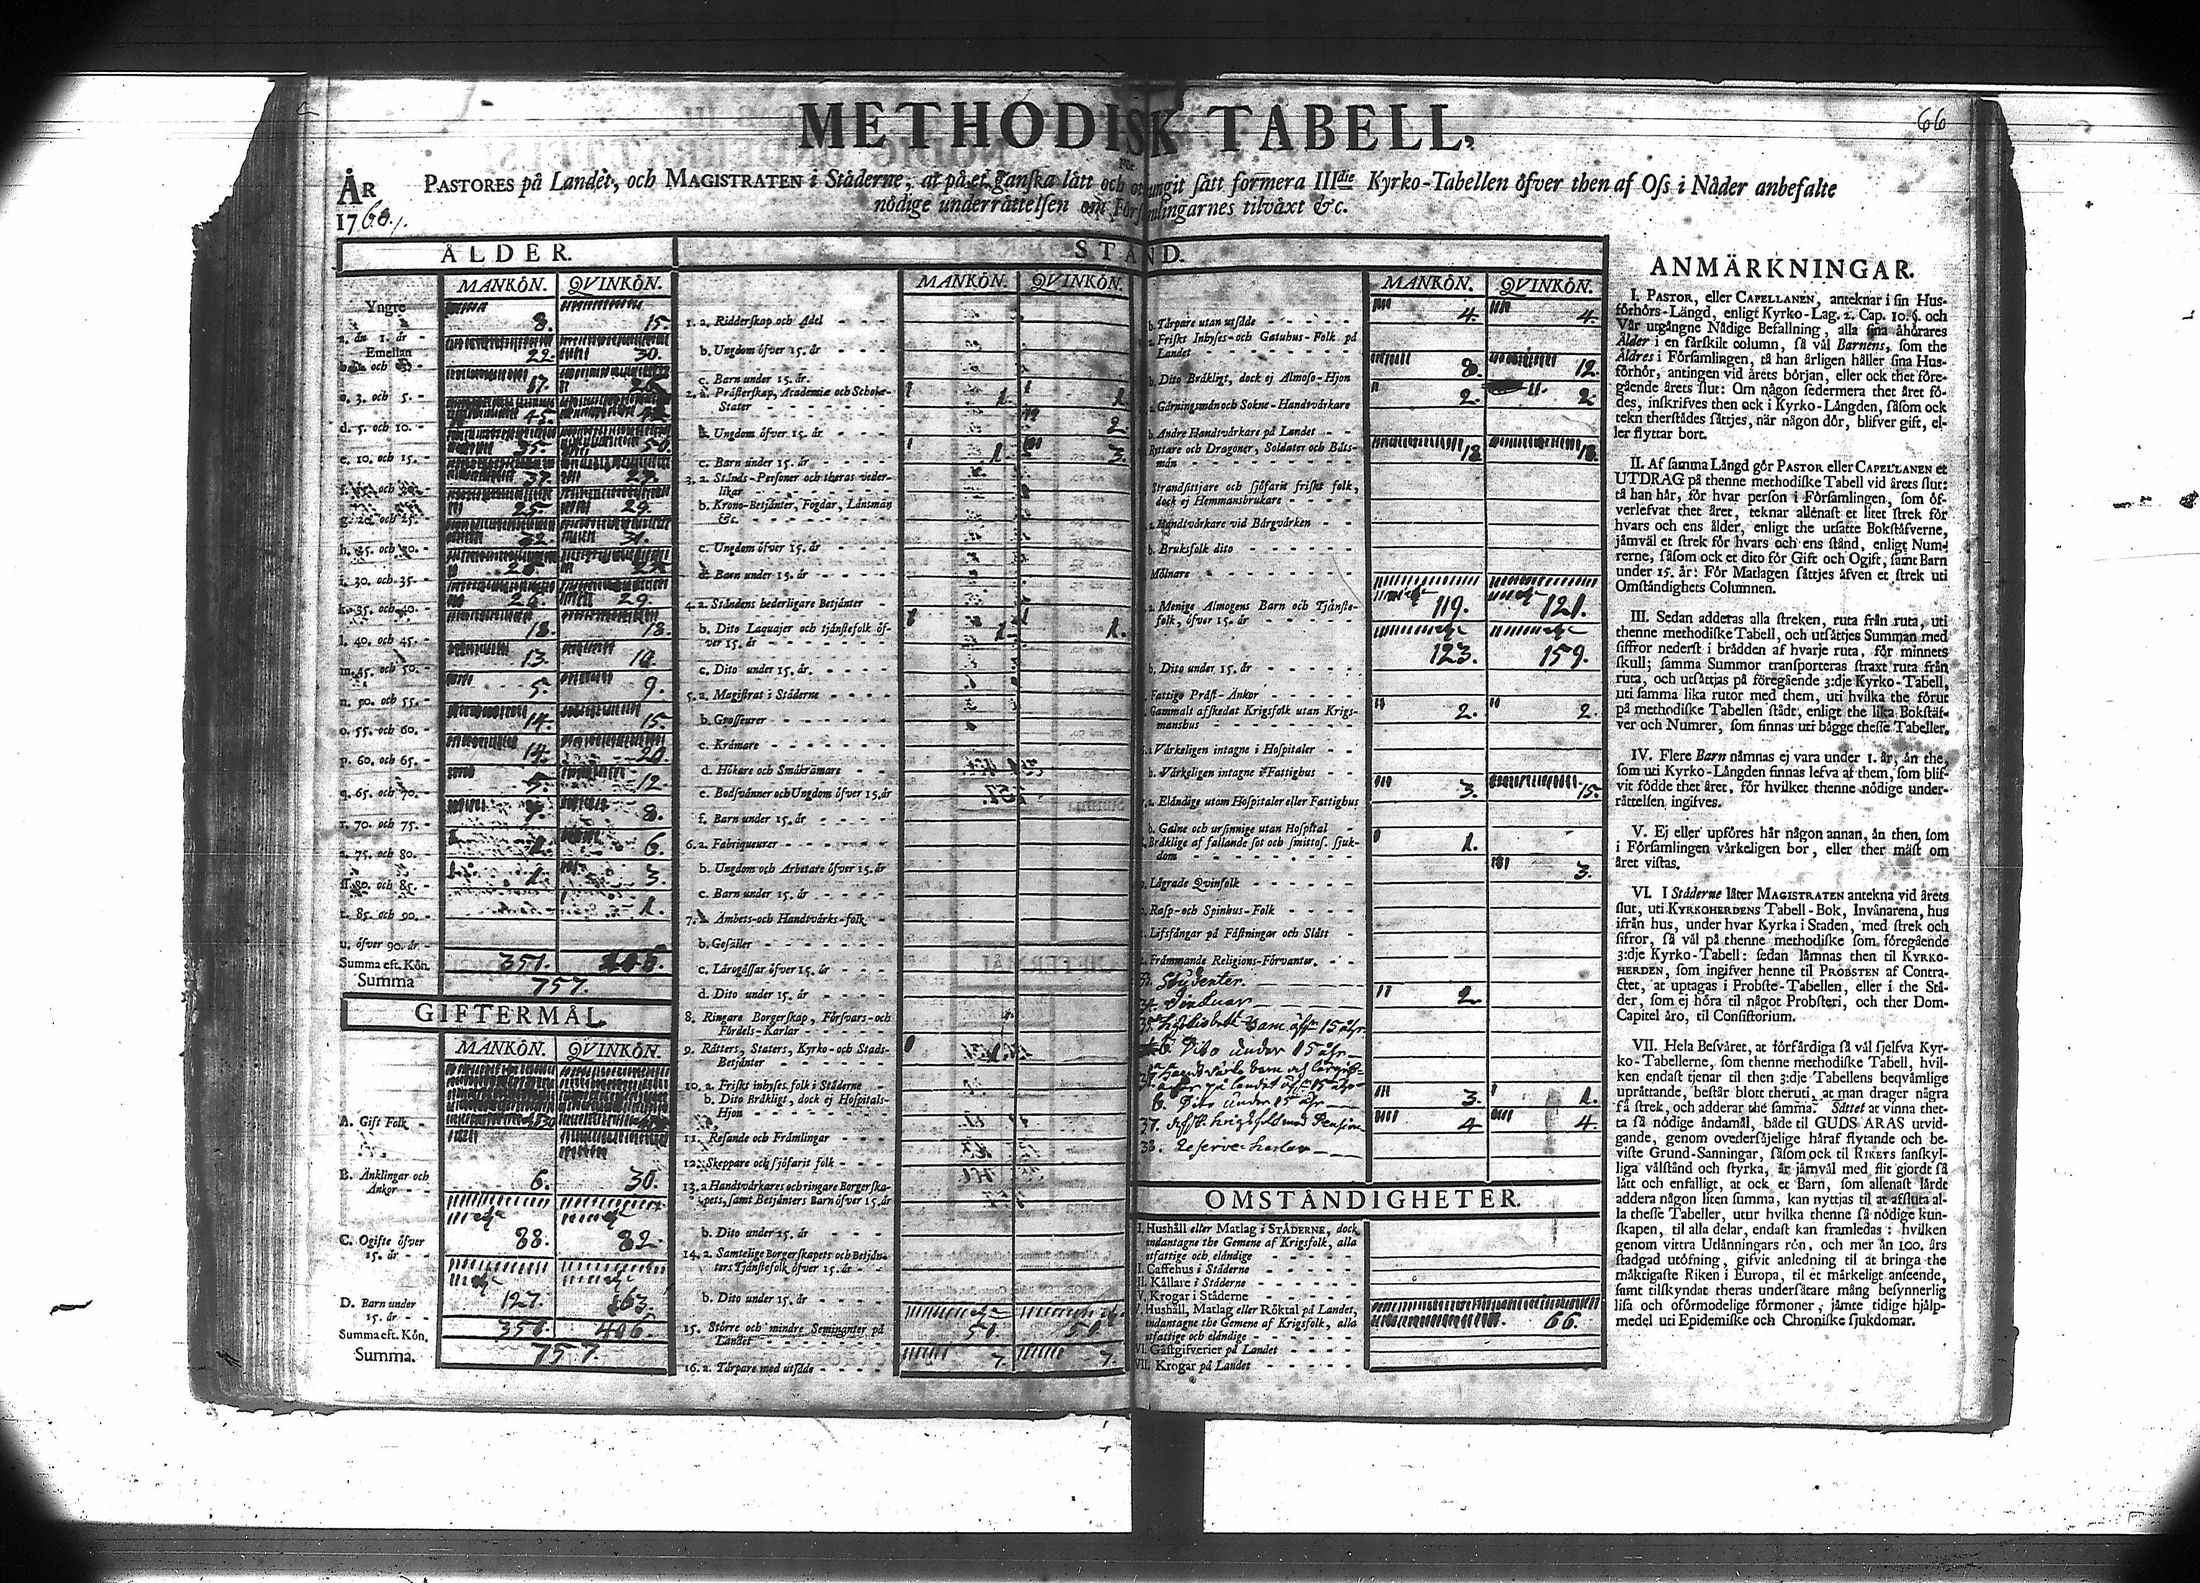 66
METHODISK TABELL,
För
ÅR PASTORES på Landet, och MAGISTRATEN i Städerne, at på et ganska lätt och otvungit sätt formera IIIdie Kyrko-Tabellen öfver then af Oss i Nåder anbefalte
1760. nödige underrättelsen om Församlingarnes tilväxt &c.
ÅLDER.
MANKÖN. QVINKÖN.
Yngre
a. än 1. år - 8. 15.
Emellan
b. 1. och 3. - 22. 30.
c. 3. och 5. - 17.
d. 5. och 10. - 45.
e. 10. och 15. - 35. 50.
f. 15. och 20. -
g. 20. och 25. - 25. 29.
h. 25. och 30. - 31.
i. 30. och 35. -
k. 35. och 40. - 26. 29.
l. 40. och 45. - 18. 18.
m. 45. och 50. - 13. 10.
n. 50. och 55. - 5. 9.
o. 55. och 60. - 14. 15.
p. 60. och 65. - 14. 20.
q. 65. och 70. - 5. 12.
r. 70. och 75. - 8.
s. 75. och 80. - 1. 6.
ſſ. 80. och 85. - 1. 3.
t. 85. och 90. - 1.
u. öfver 90. år -
Summa eft. Kön. 351. 406.
Summa 757.
GIFTERMÅL
MANKÖN. QVINKÖN.
A. Gift Folk -
B. Änklingar och
Änkor - - 6. 30.
C. Ogifte öfver
15. år - - 88. 82.
D. Barn under
15. år - - 127. 163.
Summa eft. Kön. 351. 406.
Summa. 757.
STÅND.
MANKÖN. QVINKÖN.
1. a. Ridderskap och Adel - - - -
b. Ungdom öfver 15. år - - - -
c. Barn under 15. år.
2. a. Prästerskap, Academiæ och Schole-
Stater - - - - - 1. 1.
b. Ungdom öfver 15. år - - - - 2.
c. Barn under 15. år - - - - - 1. 3.
3. a. Stånds-Personer och theras veder-
likar - - - - - -
b. Krono-Betjänter, Fogdar, Länsmän
&c. - - - - - -
c. Ungdom öfver 15. år - - - -
d. Barn under 15. år - - - -
4. a. Ståndens hederligare Betjänter -
b. Dito Laquajer och tjänstefolk öf-
ver 15. år - - - - - 1. 1.
c. Dito under 15. år. - - - -
5. a. Magistrat i Städerne - - - -
b. Grosseurer - - - - -
c. Krämare - - - - - -
d. Hökare och Småkrämare - - -
e. Bodsvänner och Ungdom öfver 15. år
f. Barn under 15. år - - - -
6. a. Fabriqueurer - - - - -
b. Ungdom och Arbetare öfver 15. år
c. Barn under 15. år - - - -
7. a. Ämbets-och Handtvärks-folk - -
b. Gesäller - - - - - -
c. Lärogåssar öfver 15. år - - -
d. Dito under 15. år - - - -
8. Ringare Borgerskap, Försvars-och
Fördels-Karlar - - - -
9. Rätters, Staters, Kyrko-och Stads-
Betjänter - - - - - 1.
10. a. Friskt inhyses folk i Städerne -
b. Dito Bräkligt, dock ej Hospitals-
Hjon - - - - - -
11. Resande och Främlingar - - -
12. Skeppare och sjöfarit folk - - -
13. a. Handtvärkares och ringare Borgerska-
pets, samt Betjänters Barn öfver 15. år
b. Dito under 15. år - - - -
14. a. Samtelige Borgerskapets och Betjän-
ters Tjänstefolk öfver 15. år - -
b. Dito under 15. år - - - -
15. Större och mindre Seminanter på
Landet - - - - - 51. 51.
16. a. Tårpare med utsäde - - - - 7. 7.
MANKÖN. QVINKÖN.
b. Tårpare utan utsäde - - - - 4. 4.
a. Friskt Inhyses-och Gatuhus-Folk på
Landet - - - - - - 8. 12.
b. Dito Bräkligt, dock ej Almoso-Hjon 2. 2.
a. Gärningsmän och Sokne-Handtvärkare
b. Andre Handtvärkare på Landet - -
Ryttare och Dragoner, Soldater och Båts-
män - - - - - - 18. 18.
Strandsittjare och sjöfarit friskt folk,
dock ej Hemmansbrukare - - - -
a. Handtvärkare vid Bärgvärken - -
b. Bruksfolk dito - - - - - -
Mölnare - - - - - - -
a. Menige Almogens Barn och Tjänste-
folk, öfver 15. år - - - - 119. 121.
b. Dito under 15. år - - - - - 123. 159.
Fattige Präst-Änkor - - - -
Gammalt afskedat Krigsfolk utan Krigs-
manshus - - - - - - 2. 2.
a. Värkeligen intagne i Hospitaler - -
b. Värkeligen intagne i Fattighus - -
a. Eländige utom Hospitaler eller Fattighus 3. 15.
b. Galne och ursinnige utan Hospital -
Bräklige af fallande sot och smittos. sjuk-
dom - - - - - - - 1.
Lägrade Qvinfolk - - - - 3.
Rasp-och Spinhus-Folk - - - -
Lifsfångar på Fästningar och Slått -
Främmande Religions-Förvanter. - -
33. Studenter. 2.
Barn öfr 15 år.
b. Dito under 15 år
på landet öfr 15 år
b. Dito under 15 år 3. 1.
37. 4. 4.
38. Reserve-karlar
OMSTÄNDIGHETER.
I. Hushåll eller Matlag i STÄDERNE, dock
undantagne the Gemene af Krigsfolk, alla
utfattige och eländige - - - -
I. Caffehus i Städerne - - - - -
II. Källare i Städerne - - - - -
V. Krogar i Städerne - - - - -
V. Hushåll, Matlag eller Röktal på Landet,
undantagne the Gemene af Krigsfolk, alla
utfattige och eländige - - - - 66.
VI. Gästgifverier på Landet - - - -
VII. Krogar på Landet - - - - -
ANMÄRKNINGAR.
I. PASTOR, eller CAPELLANEN, anteknar i sin Hus-
förhörs-Längd, enligt Kyrko-Lag. 2. Cap. 10. §. och
Vår utgångne Nådige Befallning, alla sina åhörares
Ålder i en särskilt column, så väl Barnens, som the
Äldres i Församlingen, tå han årligen håller sina Hus-
förhör, antingen vid årets början, eller ock thet före-
gående årets slut: Om någon sedermera thet året fö-
des, inskrifves then ock i Kyrko-Längden, såsom ock
tekn therstädes sättjes, när någon dör, blifver gift, el-
ler flyttar bort.
II. Af samma Längd gör PASTOR eller CAPELLANEN et
UTDRAG på thenne methodiske Tabell vid årets slut:
tå han här, för hvar person i Församlingen, som öf-
verlefvat thet året, teknar allenast et litet strek för
hvars och ens ålder, enligt the utsatte Bokstäfverne,
jämväl et strek för hvars och ens stånd, enligt Num-
rerne, såsom ock et dito för Gift och Ogift, samt Barn
under 15. år: För Matlagen sättjes äfven et strek uti
Omständighets Columnen.
III. Sedan adderas alla streken, ruta från ruta, uti
thenne methodiske Tabell, och utsättjes Summan med
siffror nederst i brädden af hvarje ruta, för minnets
skull; samma Summor transporteras straxt ruta från
ruta, och utsättjas på föregående 3:dje Kyrko-Tabell,
uti samma lika rutor med them, uti hvilka the förut
på methodiske Tabellen städt, enligt the lika Bokstäf-
ver och Numrer, som finnas uti bägge thesse Tabeller.
IV. Flere Barn nämnas ej vara under 1. år, än the,
som uti Kyrko-Längden finnas lefva af them, som blif-
vit födde thet året, för hvilket thenne nödige under-
rättelsen ingifves.
V. Ej eller upföres här någon annan, än then, som
i Församlingen värkeligen bor, eller ther mäst om
året vistas.
VI. I Städerne låter MAGISTRATEN antekna vid årets
slut, uti KYRKOHERDENS Tabell-Bok, Invånarena, hus
ifrån hus, under hvar Kyrka i Staden, med strek och
sifror, så väl på thenne methodiske som föregående
3:dje Kyrko-Tabell: sedan lämnas then til KYRKO-
HERDEN, som ingifver henne til PROBSTEN af Contra-
ctet, at uptagas i Probste-Tabellen, eller i the Stä-
der, som ej höra til något Probsteri, och ther Dom-
Capitel äro, til Consistorium.
VII. Hela Besväret, at förfärdiga så väl sjelfva Kyr-
ko-Tabellerne, som thenne methodiske Tabell, hvil-
ken endast tjenar til then 3:dje Tabellens beqvämlige
uprättande, består blott theruti, at man drager några
få strek, och adderar the samma. Sättet at vinna thet-
ta så nödige ändamål, både til GUDS ÄRAS utvid-
gande, genom ovedersäjelige häraf flytande och be-
viste Grund-Sanningar, såsom ock til RIKETS sanskyl-
liga välstånd och styrka, är jämväl med flit gjordt så
lätt och enfalligt, at ock et Barn, som allenast lärdt
addera någon liten summa, kan nyttjas til at afsluta al-
la thesse Tabeller, utur hvilka thenne så nödige kun-
skapen, til alla delar, endast kan framledas: hvilken
genom vittra Utlänningars rön, och mer än 100. års
stadgad utöfning, gifvit anledning til at bringa the
mäktigaste Riken i Europa, til et märkeligt anseende,
samt tilskyndat theras undersåtare mång besynnerlig
lisa och oförmodelige förmoner, jämte tidige hjälp-
medel uti Epidemiske och Chroniske sjukdomar.